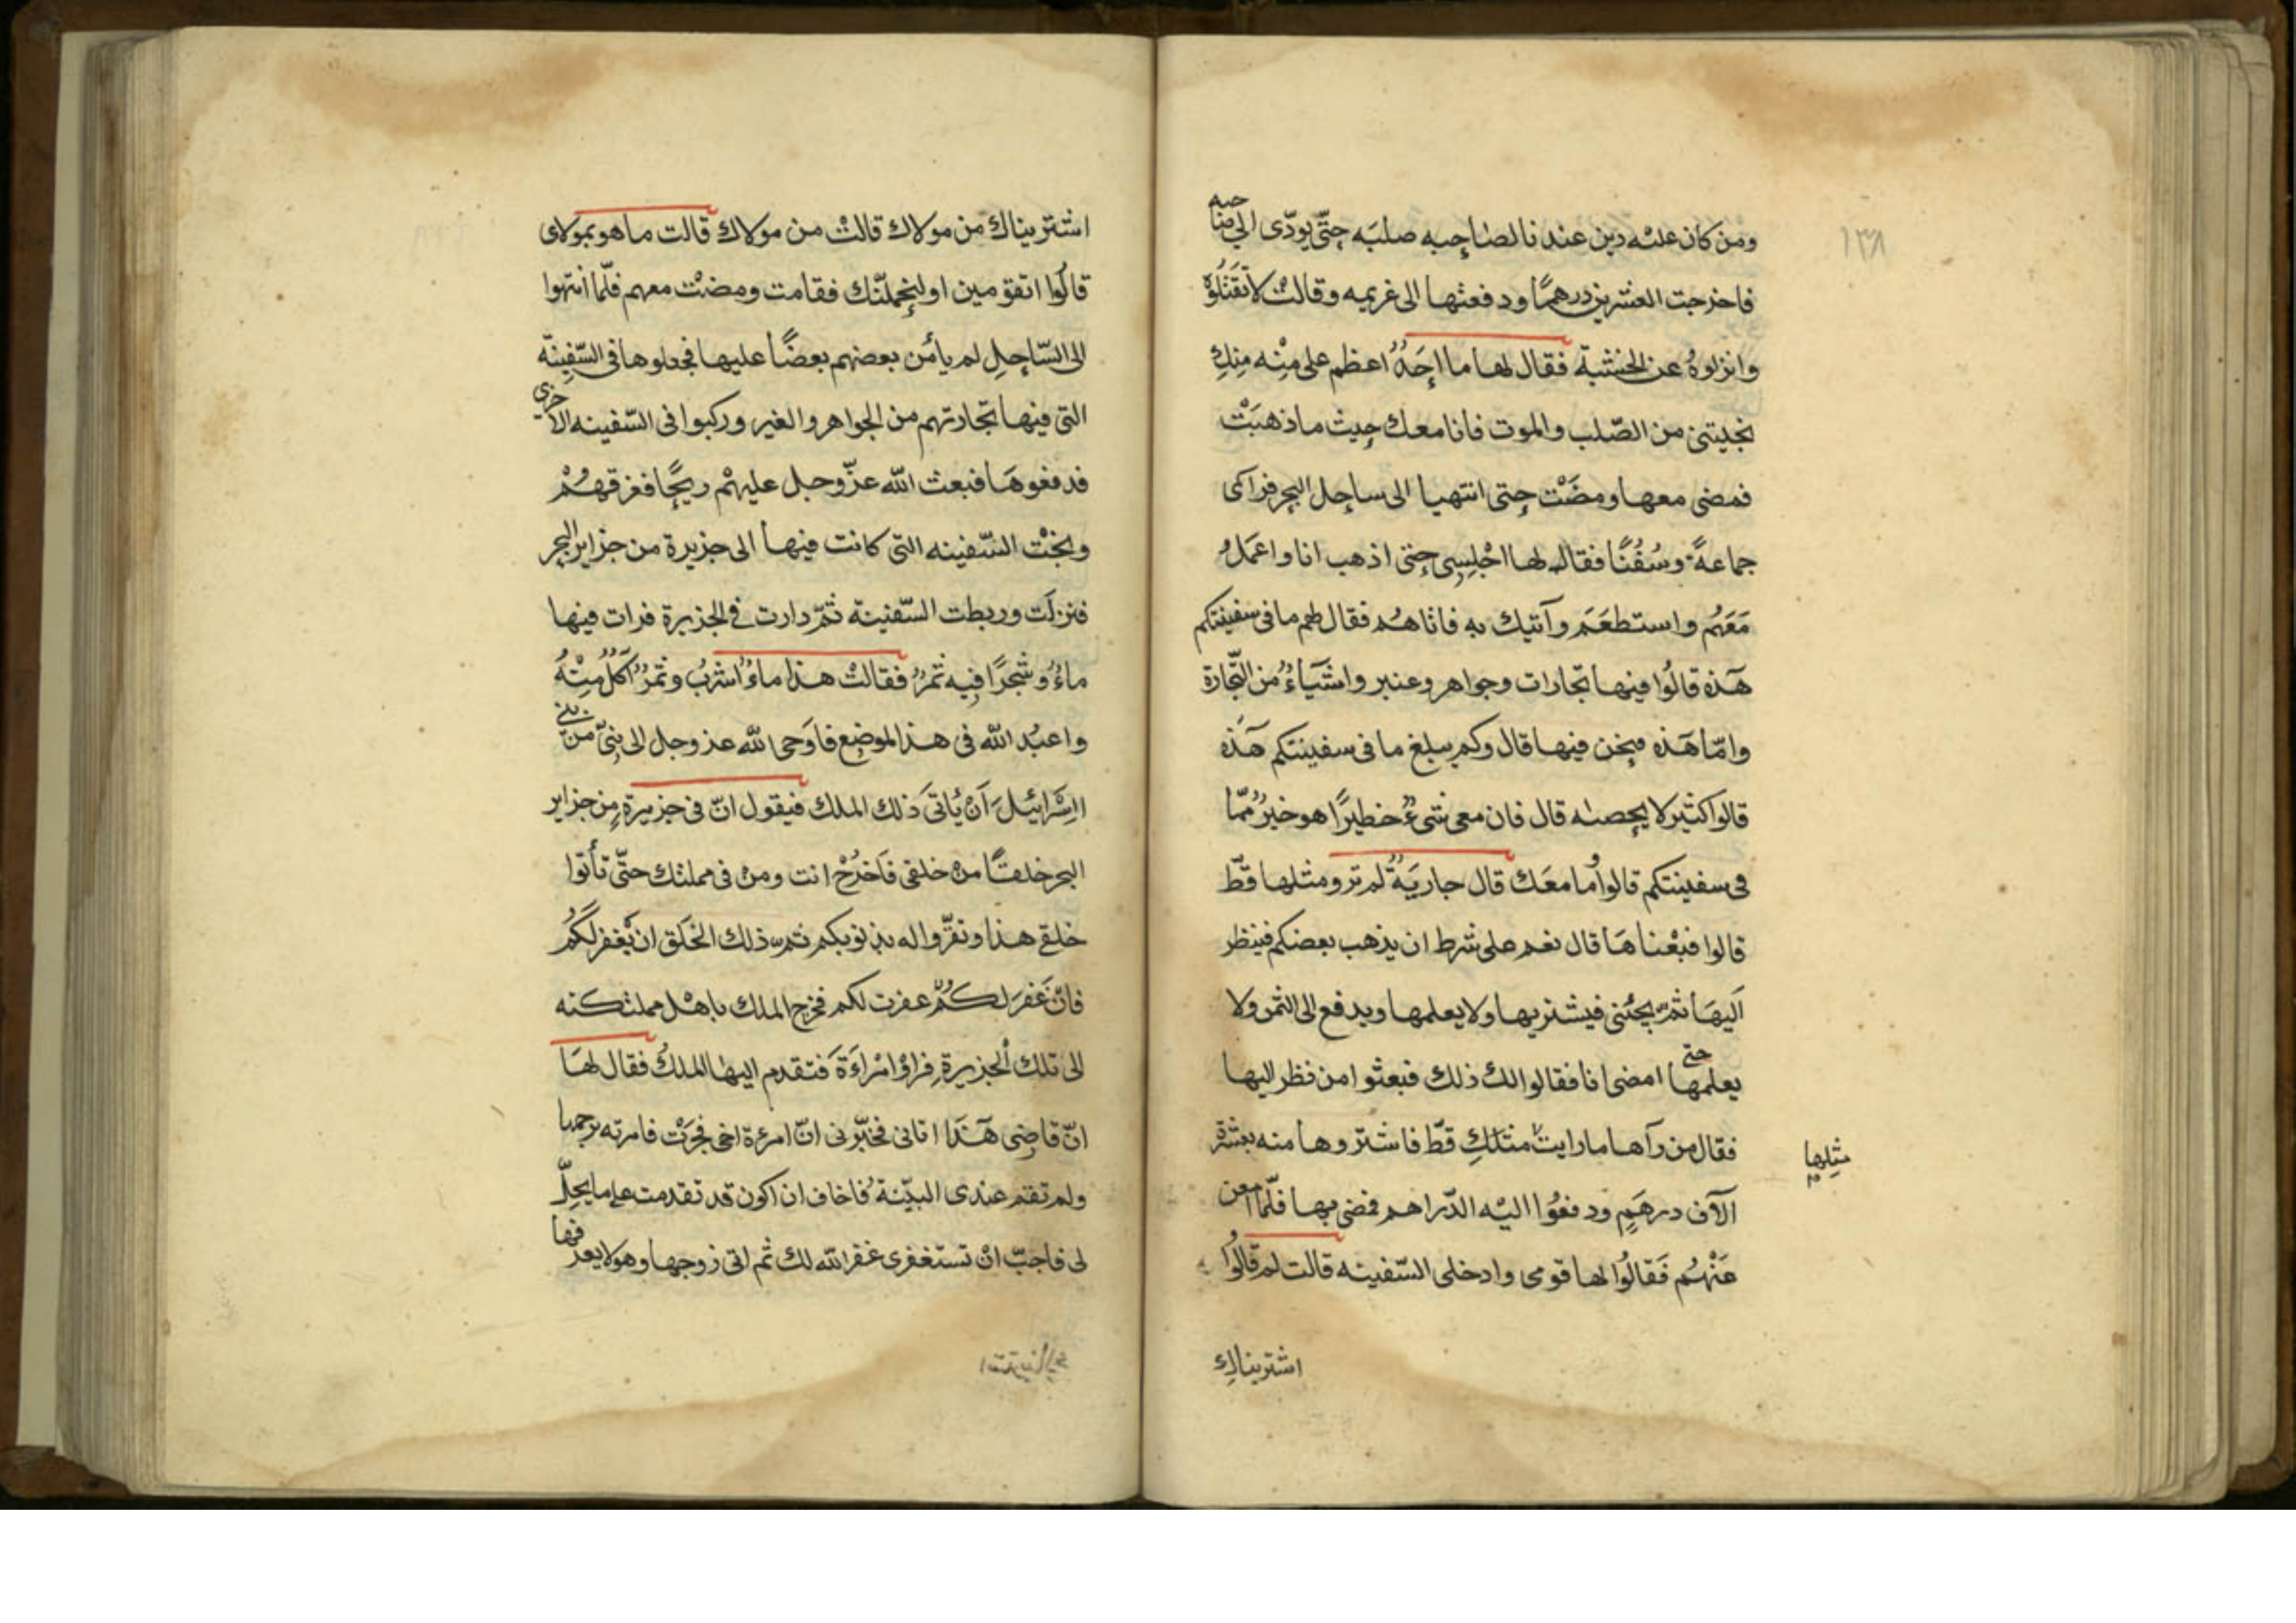 ١٣٨
ومن كان عليه دين عندنا لصاحبه صلبه حتّى يودّى الى صاحبه
فاخرجت العشرين درهمًا ودفعتها الى غريمه وقالت لا تقتلوه
وانزلوهُ عن الخشبة فقال لها ما احَدٌ اعظم على مِنْه مِنكِ
نجيتنى من الصّلب والموت فانا معك حيث ما ذهبَتْ
فمضى معها ومضَتْ حتى انتهيا الى ساحل البحر فرآى
جماعةً وسُفُنًا فقال لها اجْلِسِى حتى اذهب انا واعمَلُ
مَعَهُم واستطعَم وآتيك به فاتاهُم فقال لهم ما فى سفينتكم
هَذه قالُوا فيها تجارات وجواهر وعنبر واشيَاءٌ من التّجارة
وامّا هَذه فنحن فيها قال وكم يبلغ ما فى سفينتكم هَذه
قالوا كثير لا يحصيه قال فان معى شىءٌ خطيرًا هو خيرٌ ممّا
فى سفينتكم قالوا وما معَك قال جاريَةٌ لم تروا مثلها قطّ
قالوا فبعْناهَا قال نعم على شرط ان يذهب بعضكم فينظر
اليهَا ثمّ يجئنى فيشتريها ولا يعلمها ويدفع الى الثمن ولا
يعلمها حتى امضى انا فقالوا لك ذلك فبعثوا من نظر اليها
فقال من رآها ما رايت مثلكِ قطّ فاشتروها منه بعشرة
مثلها
آلآف درهَمٍ ودفعُوا اليْه الدّراهم فمضى بها فلمّا امعن
عَنْهُم فَقالُوا لها قومى وادخلى السّفينه قالت لم قالُوا
اشتريناكِ
اشتريناك من مولاك قالتْ من مولاك قالت ما هو بمولاى
قالُوا اتقومين او لنحملنّك فقامت ومضتْ معهم فلّما انتهوا
الى السّاحِلِ لم يأمن بعضهم بعضًا عليها فجعلوها فى السّفِينة
التى فيها تجارتهم من الجواهر والغير وركبوا فى السّفينه الاخرى
فدفعوهَا فبعث اللّه عزّوجل عليهمْ ريحًا فغرقهُمْ
ونجتْ السّفينه التى كانت فيها الى جزيرة من جزاير البحر
فنزلَت وربطت السّفينة ثمّ دارت فى الجزيرة فرات فيها
ماءٌ وشجرًا فيِه ثمرٌ فقالتْ هذا ماءٌ اشربُ وثمرٌ آكلُ مِنْهُ
واعبُد اللّه فى هذا الموضِع فاوَحى اللّه عزوجل الى نبِىّ من بنى
اسْرَائيلَ اَنْ يُاتىَ ذلك الملك فيقول انّ فى جزيرةٍ مِن جزاير
البحر خلقًا منْ خلقى فَاخرُجْ انت ومنْ فى مملتك حتّى تأتوا
خلقى هذا وتقرّوا له بذنوبكم ثم سَل ذلك الخَلق ان يغفر لكُم
فانْ غَفَر لكُم غفرت لكم فخرج الملك باهْل مملتكته
الى تلك الجزيرةِ فراوْا امْراَءةَ فتقدم اليها الملكُ فقال لهَا
انّ قاضِى هَذا اتانى فخبّرنى انّ امرءة اخى فجرَتْ فامرته برجمها
ولم تقم عندى البيّنة فاخاف ان اكون قد تقدمت على ما لا يحلّ
لى فاحبّ انْ تستغفرى غفر اللّه لك ثم اتى زوجها وهو لا يعرفها